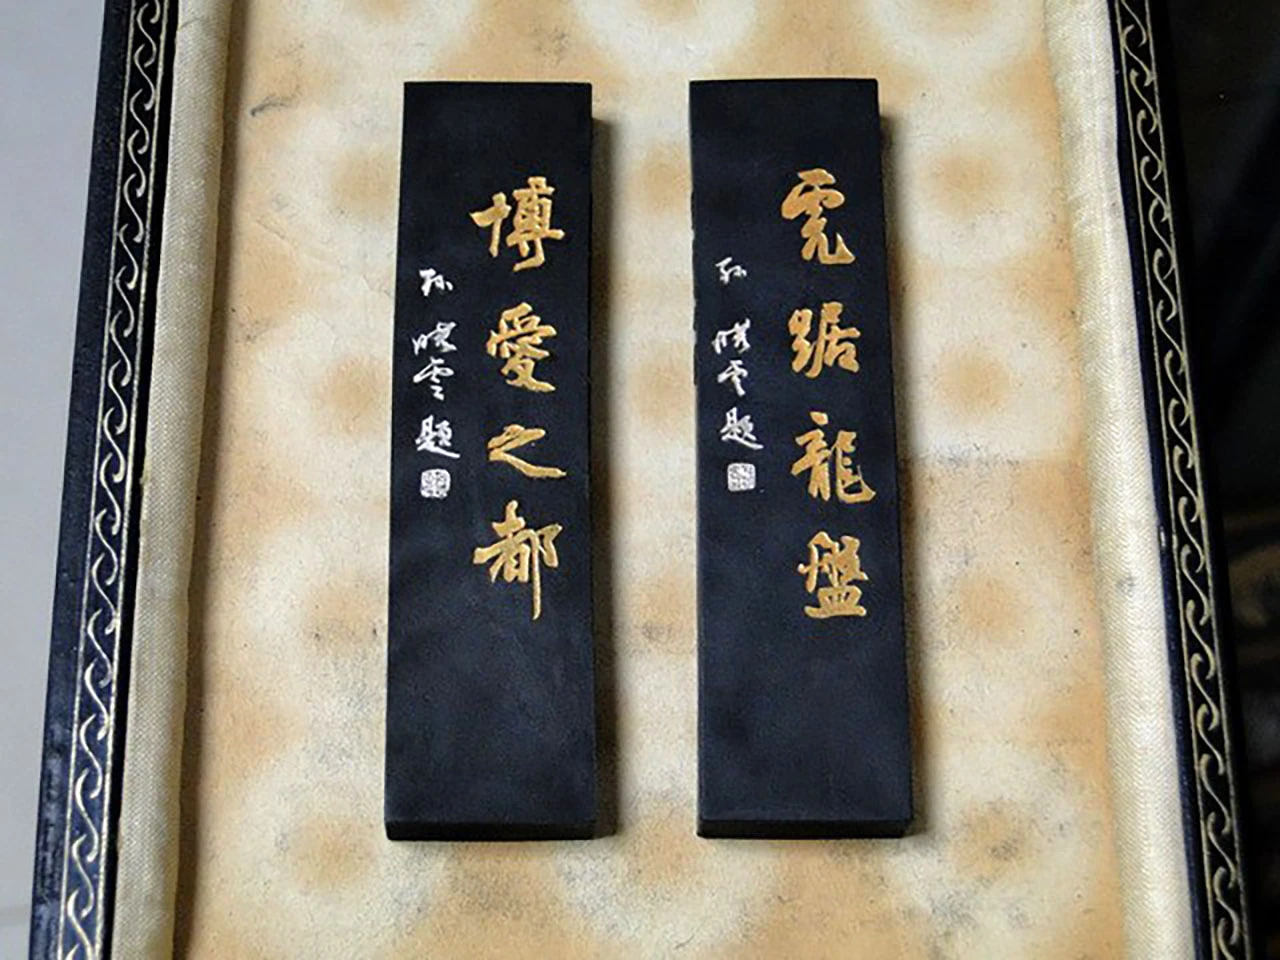 虎踞龍盤
孫曉雲題
博愛之都
孫曉雲題